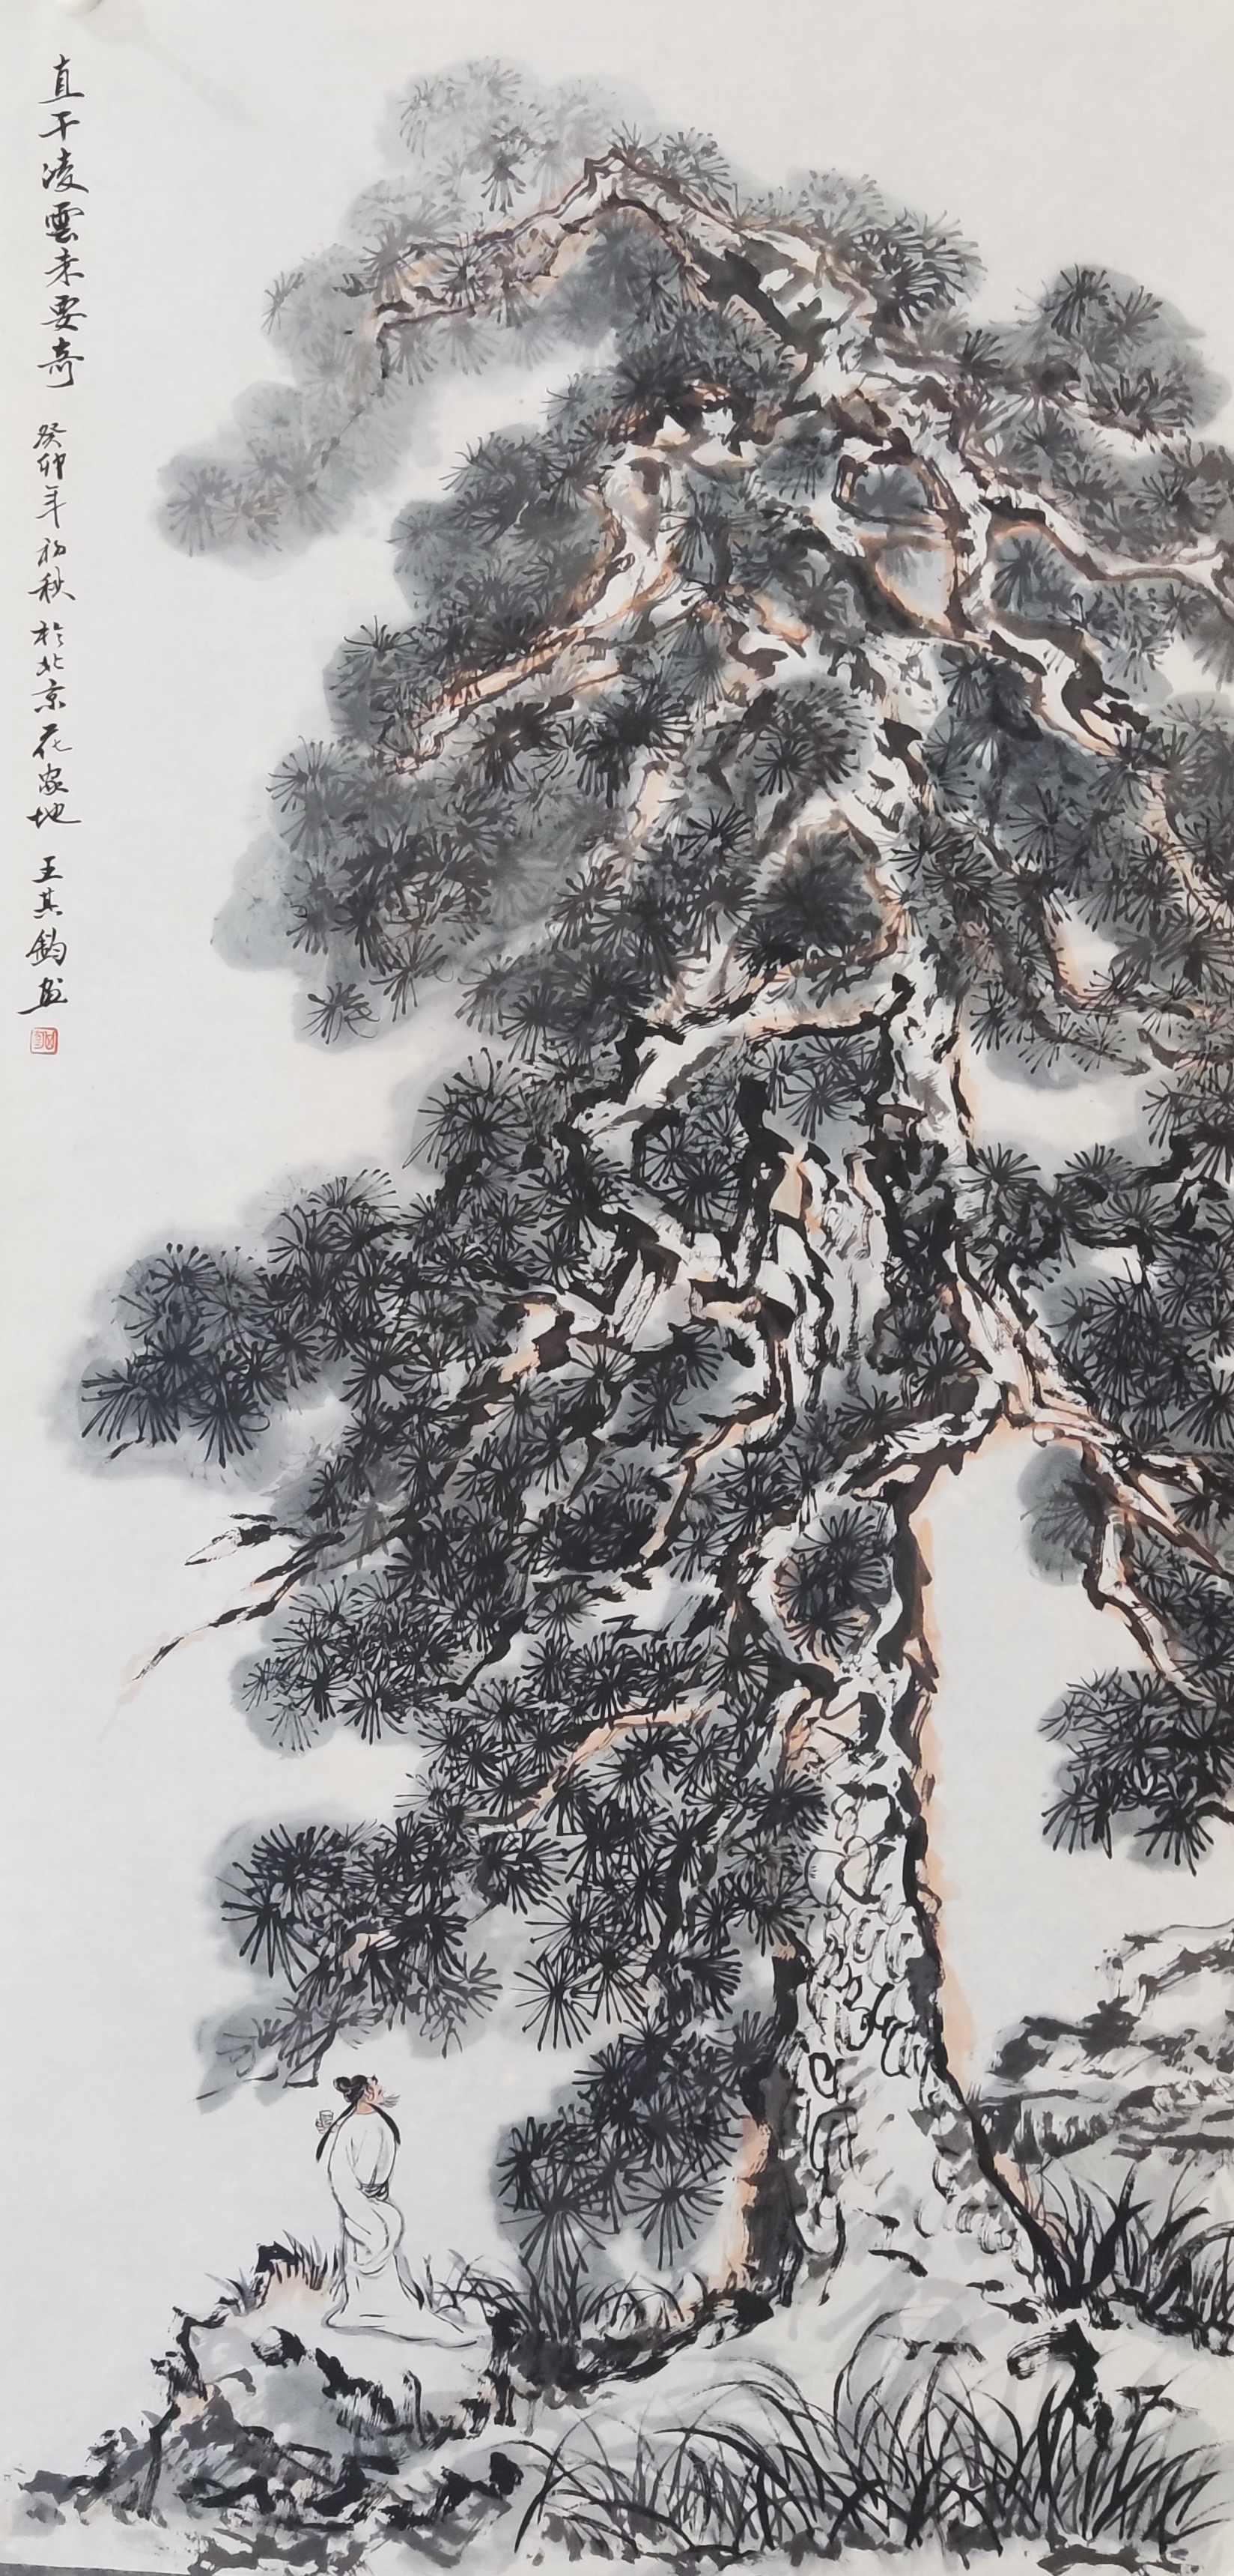 直干凌雲未要奇 癸卯年初秋於北京花家地 王其鈞画